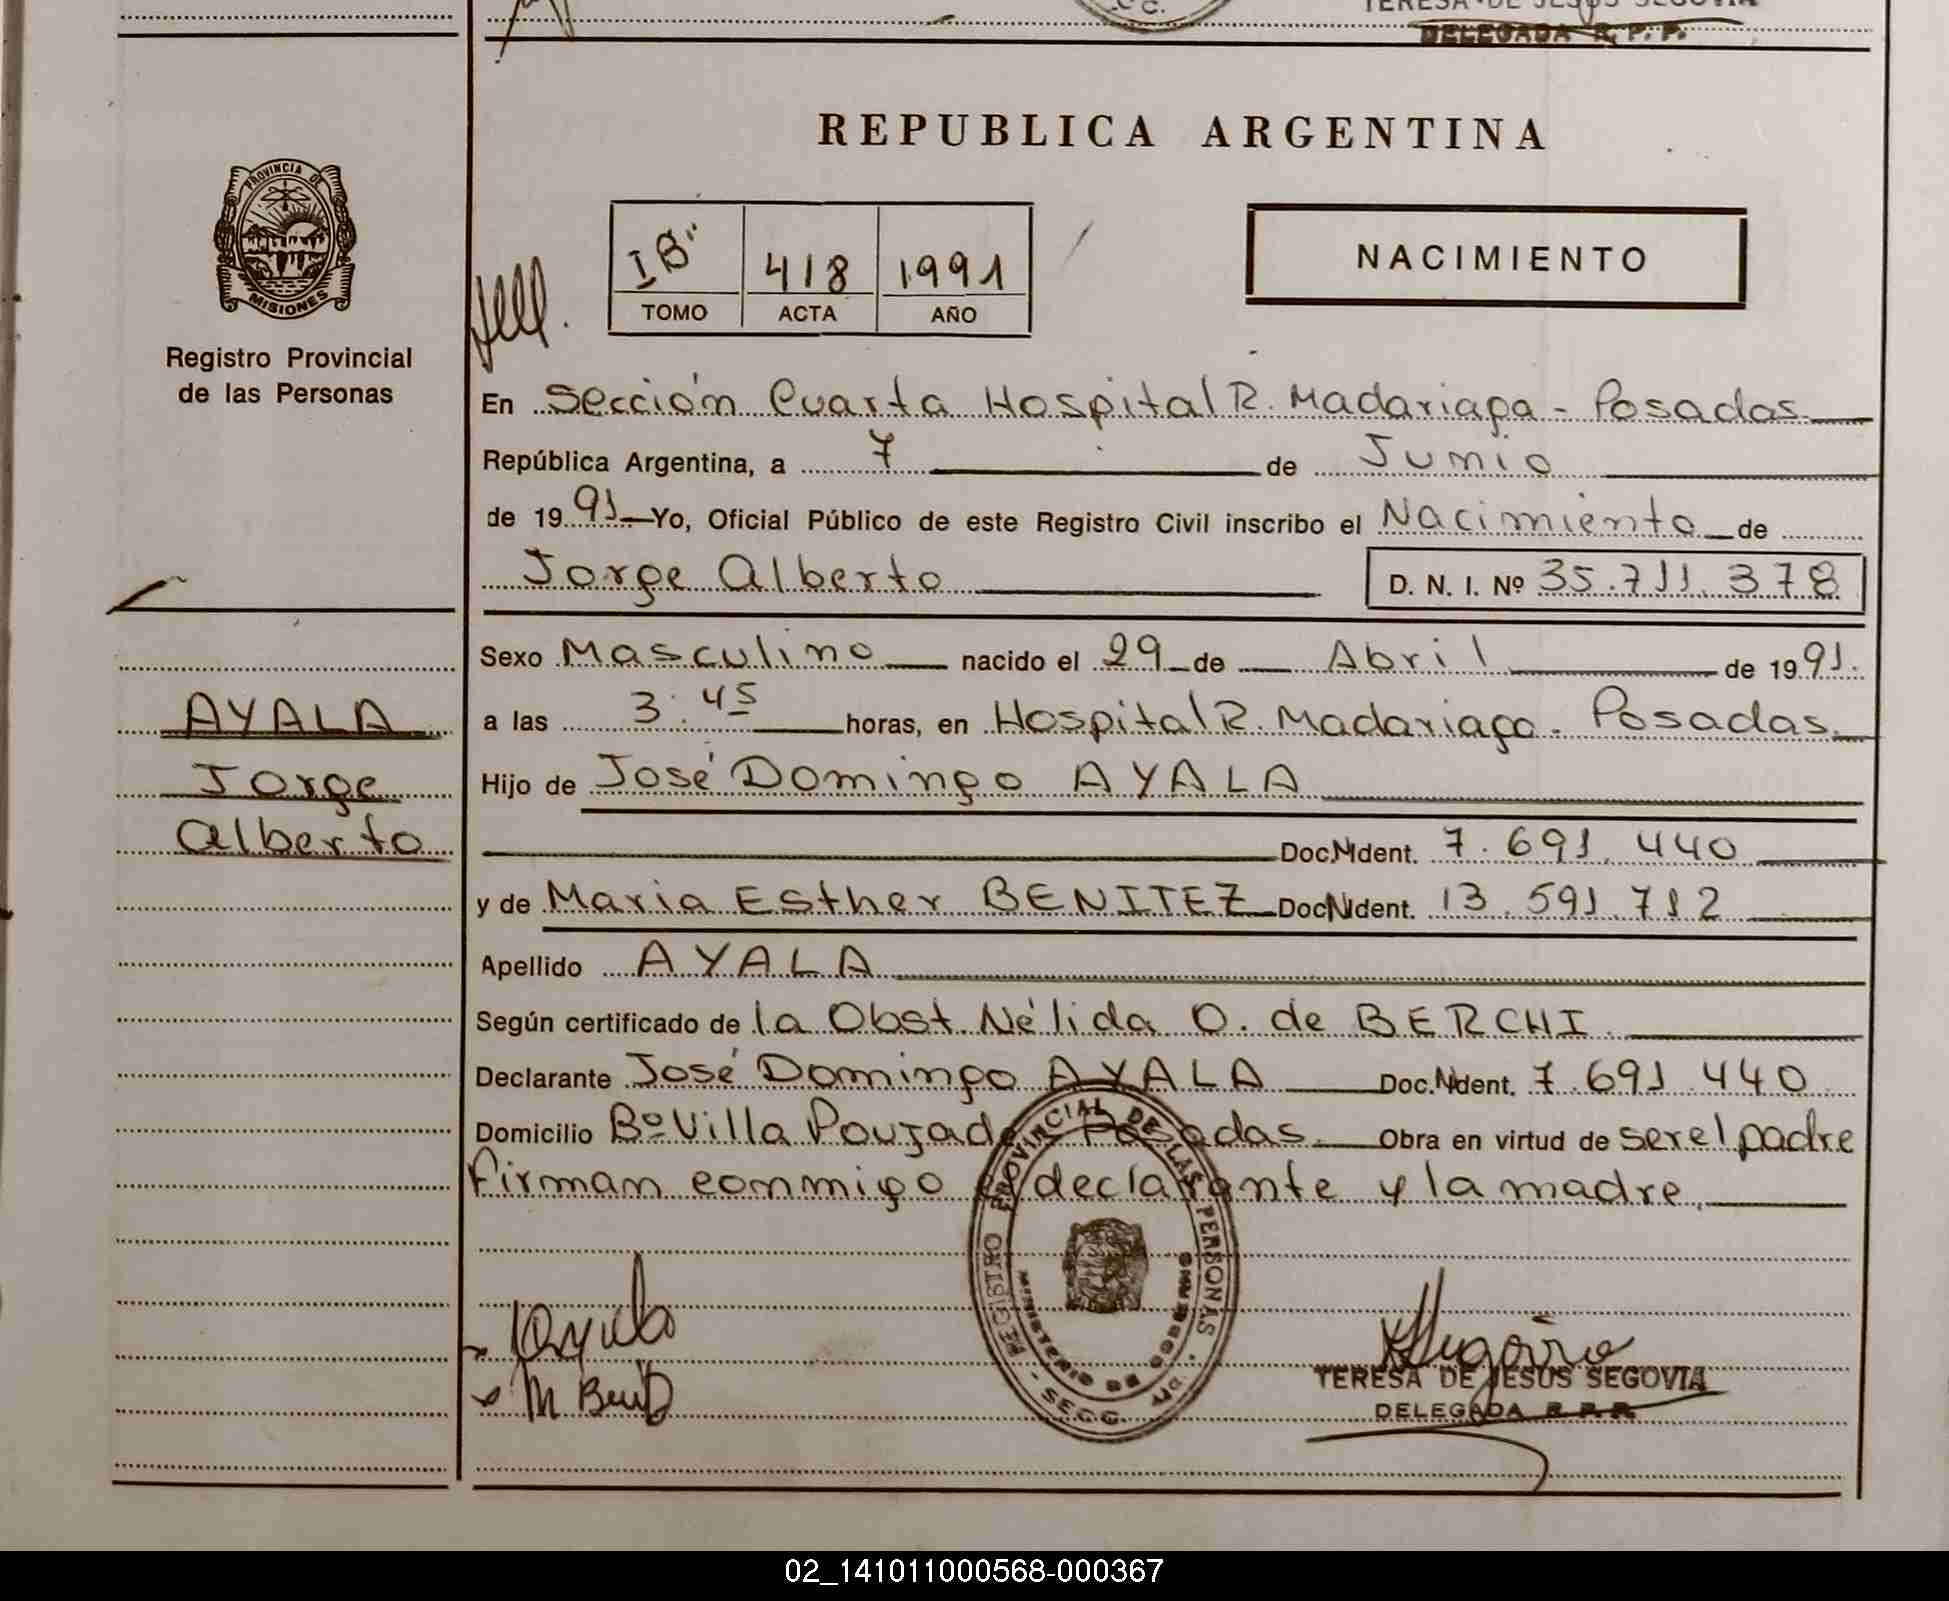 TERESA DE JESUS SEGOVIA
DELEGADA R. P. P.
REPUBLICA ARGENTINA
PROVINCIA DE
MISIONES
Registro Provincial
de las Personas
I B"
418
1991
TOMO
ACTA
AÑO
NACIMIENTO
En Sección Cuarta Hospital R. Madariaga - Posadas
República Argentina, a 7 de Junio
de 1991 Yo, Oficial Público de este Registro Civil inscribo el Nacimiento de
Jorge Alberto D. N. I. Nº 35.711.378
Sexo Masculino nacido el 29 de Abril de 1991.
a las 3:45 horas, en Hospital R. Madariaga - Posadas.
Hijo de José Domingo AYALA
Doc. Ident. 7.691.440
y de Maria Esther BENITEZ Doc. Ident. 13.591.712
Apellido AYALA
Según certificado de la Obst. Nélida O. de BERCHI
Declarante José Domingo AYALA Doc. Ident. 7.691.440
Domicilio Bº Villa Poujade - Posadas. Obra en virtud de ser el padre
firman conmigo el declarante y la madre.
AYALA
Jorge
Alberto
REGISTRO PROVINCIAL DE LAS PERSONAS
MINISTERIO DE GOBIERNO
M Benit
TERESA DE JESUS SEGOVIA
DELEGADA R. P. P.
02_141011000568-000367